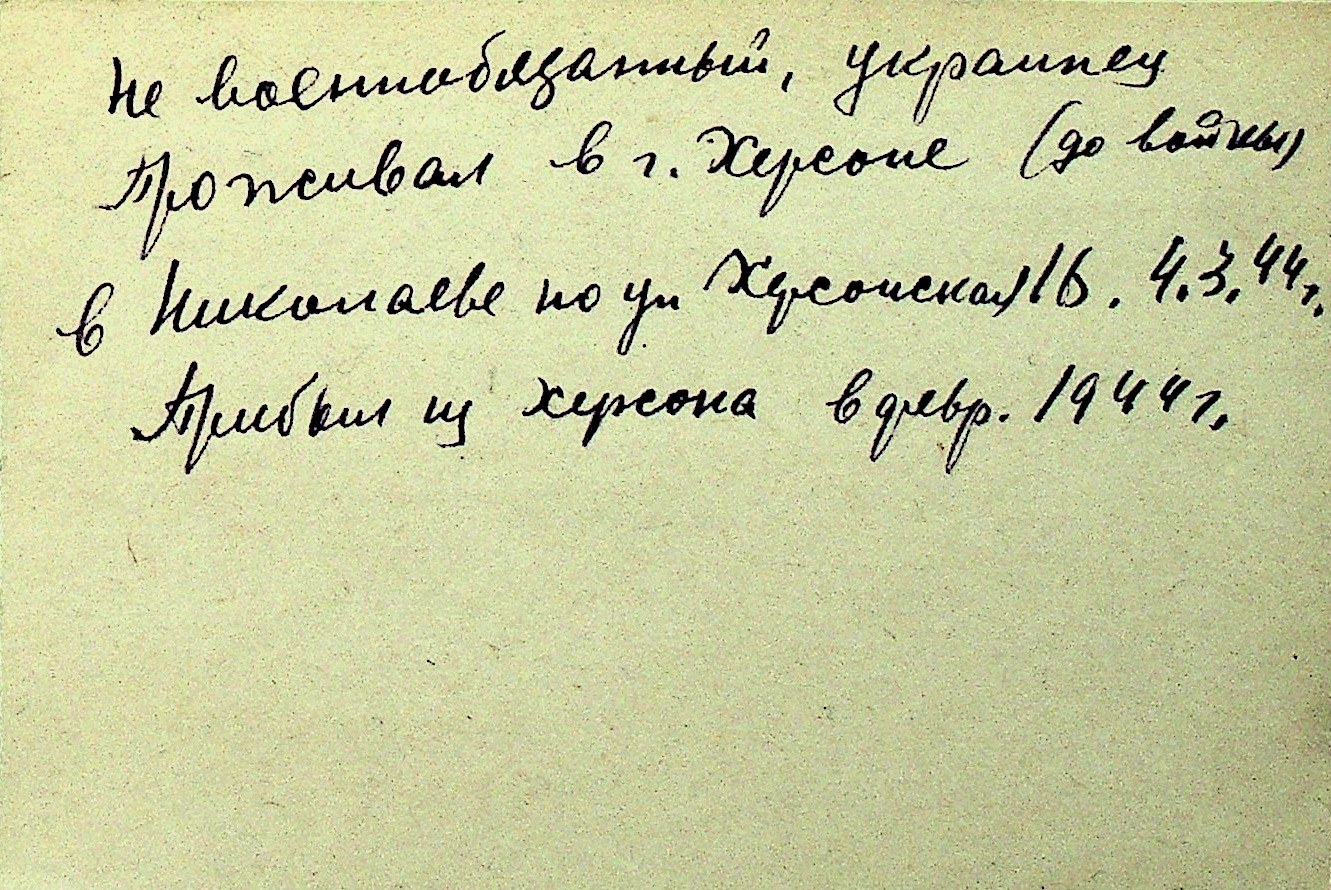 Не военнобязанный, украинец
Проживал в г. Херсоне (до войны)
в Николаеве по ул Херсонская 16. 4.3.44г.
Прибыл из Херсона в февр. 1944г.